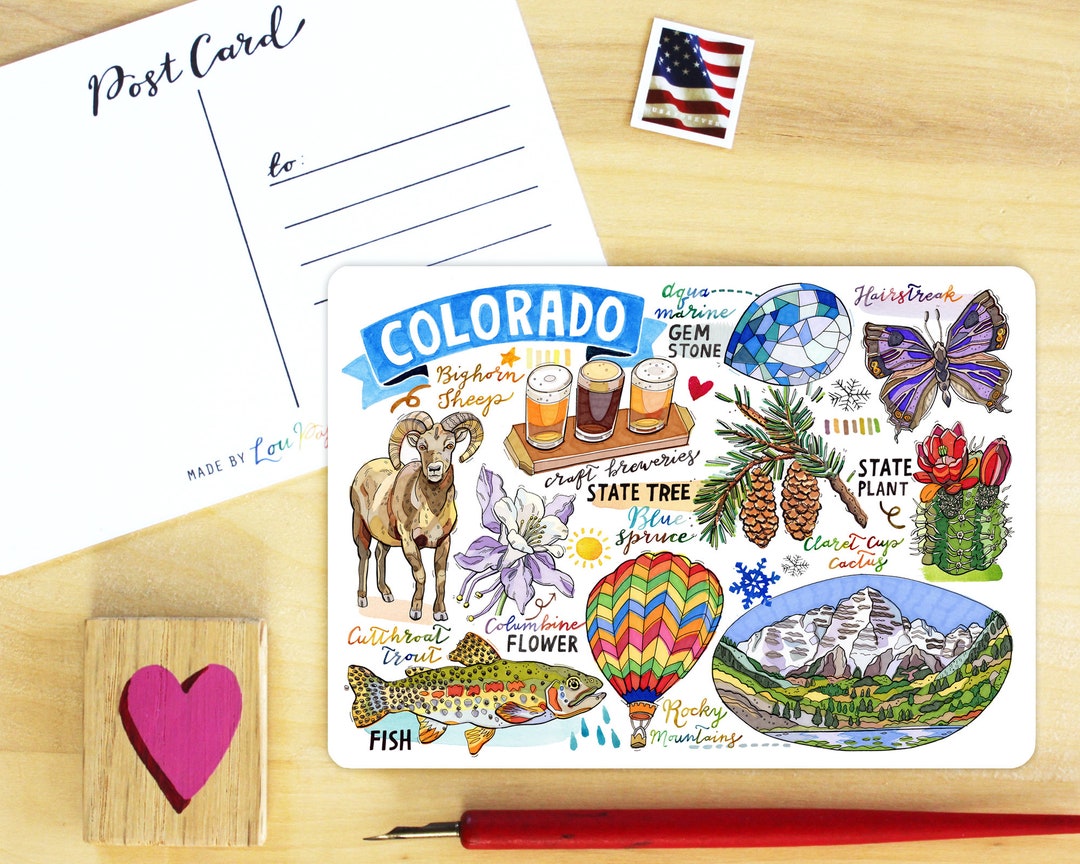 Post Card
to:
MADE BY Lou
COLORADO
Bighorn
Sheep
craft breweries
aqua
marine
GEM
STONE
Hairstreak
STATE TREE
Blue
spruce
STATE
PLANT
Claret Cup
Cactus
Columbine
FLOWER
Cutthroat
Trout
FISH
Rocky
Mountains